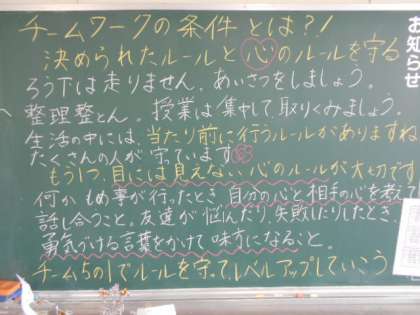 チームワークの条件とは?!
決められたルールと心のルールを守る
ろう下は走りません。あいさつをしましょう。
整理整とん。授業は集中して取りくみましょう。
生活の中には、当たり前に行うルールがありますね
たくさんの人が守っています
もう1つ、目には見えない心のルールが大切です
何かもめ事が行ったとき、自分の心と相手の心を考え
話し合うこと。友達が悩んだり、失敗したりしたとき、
勇気づける言葉をかけて味方になること。
チーム5の1でルールを守ってレベルアップしていこう
お知らせ